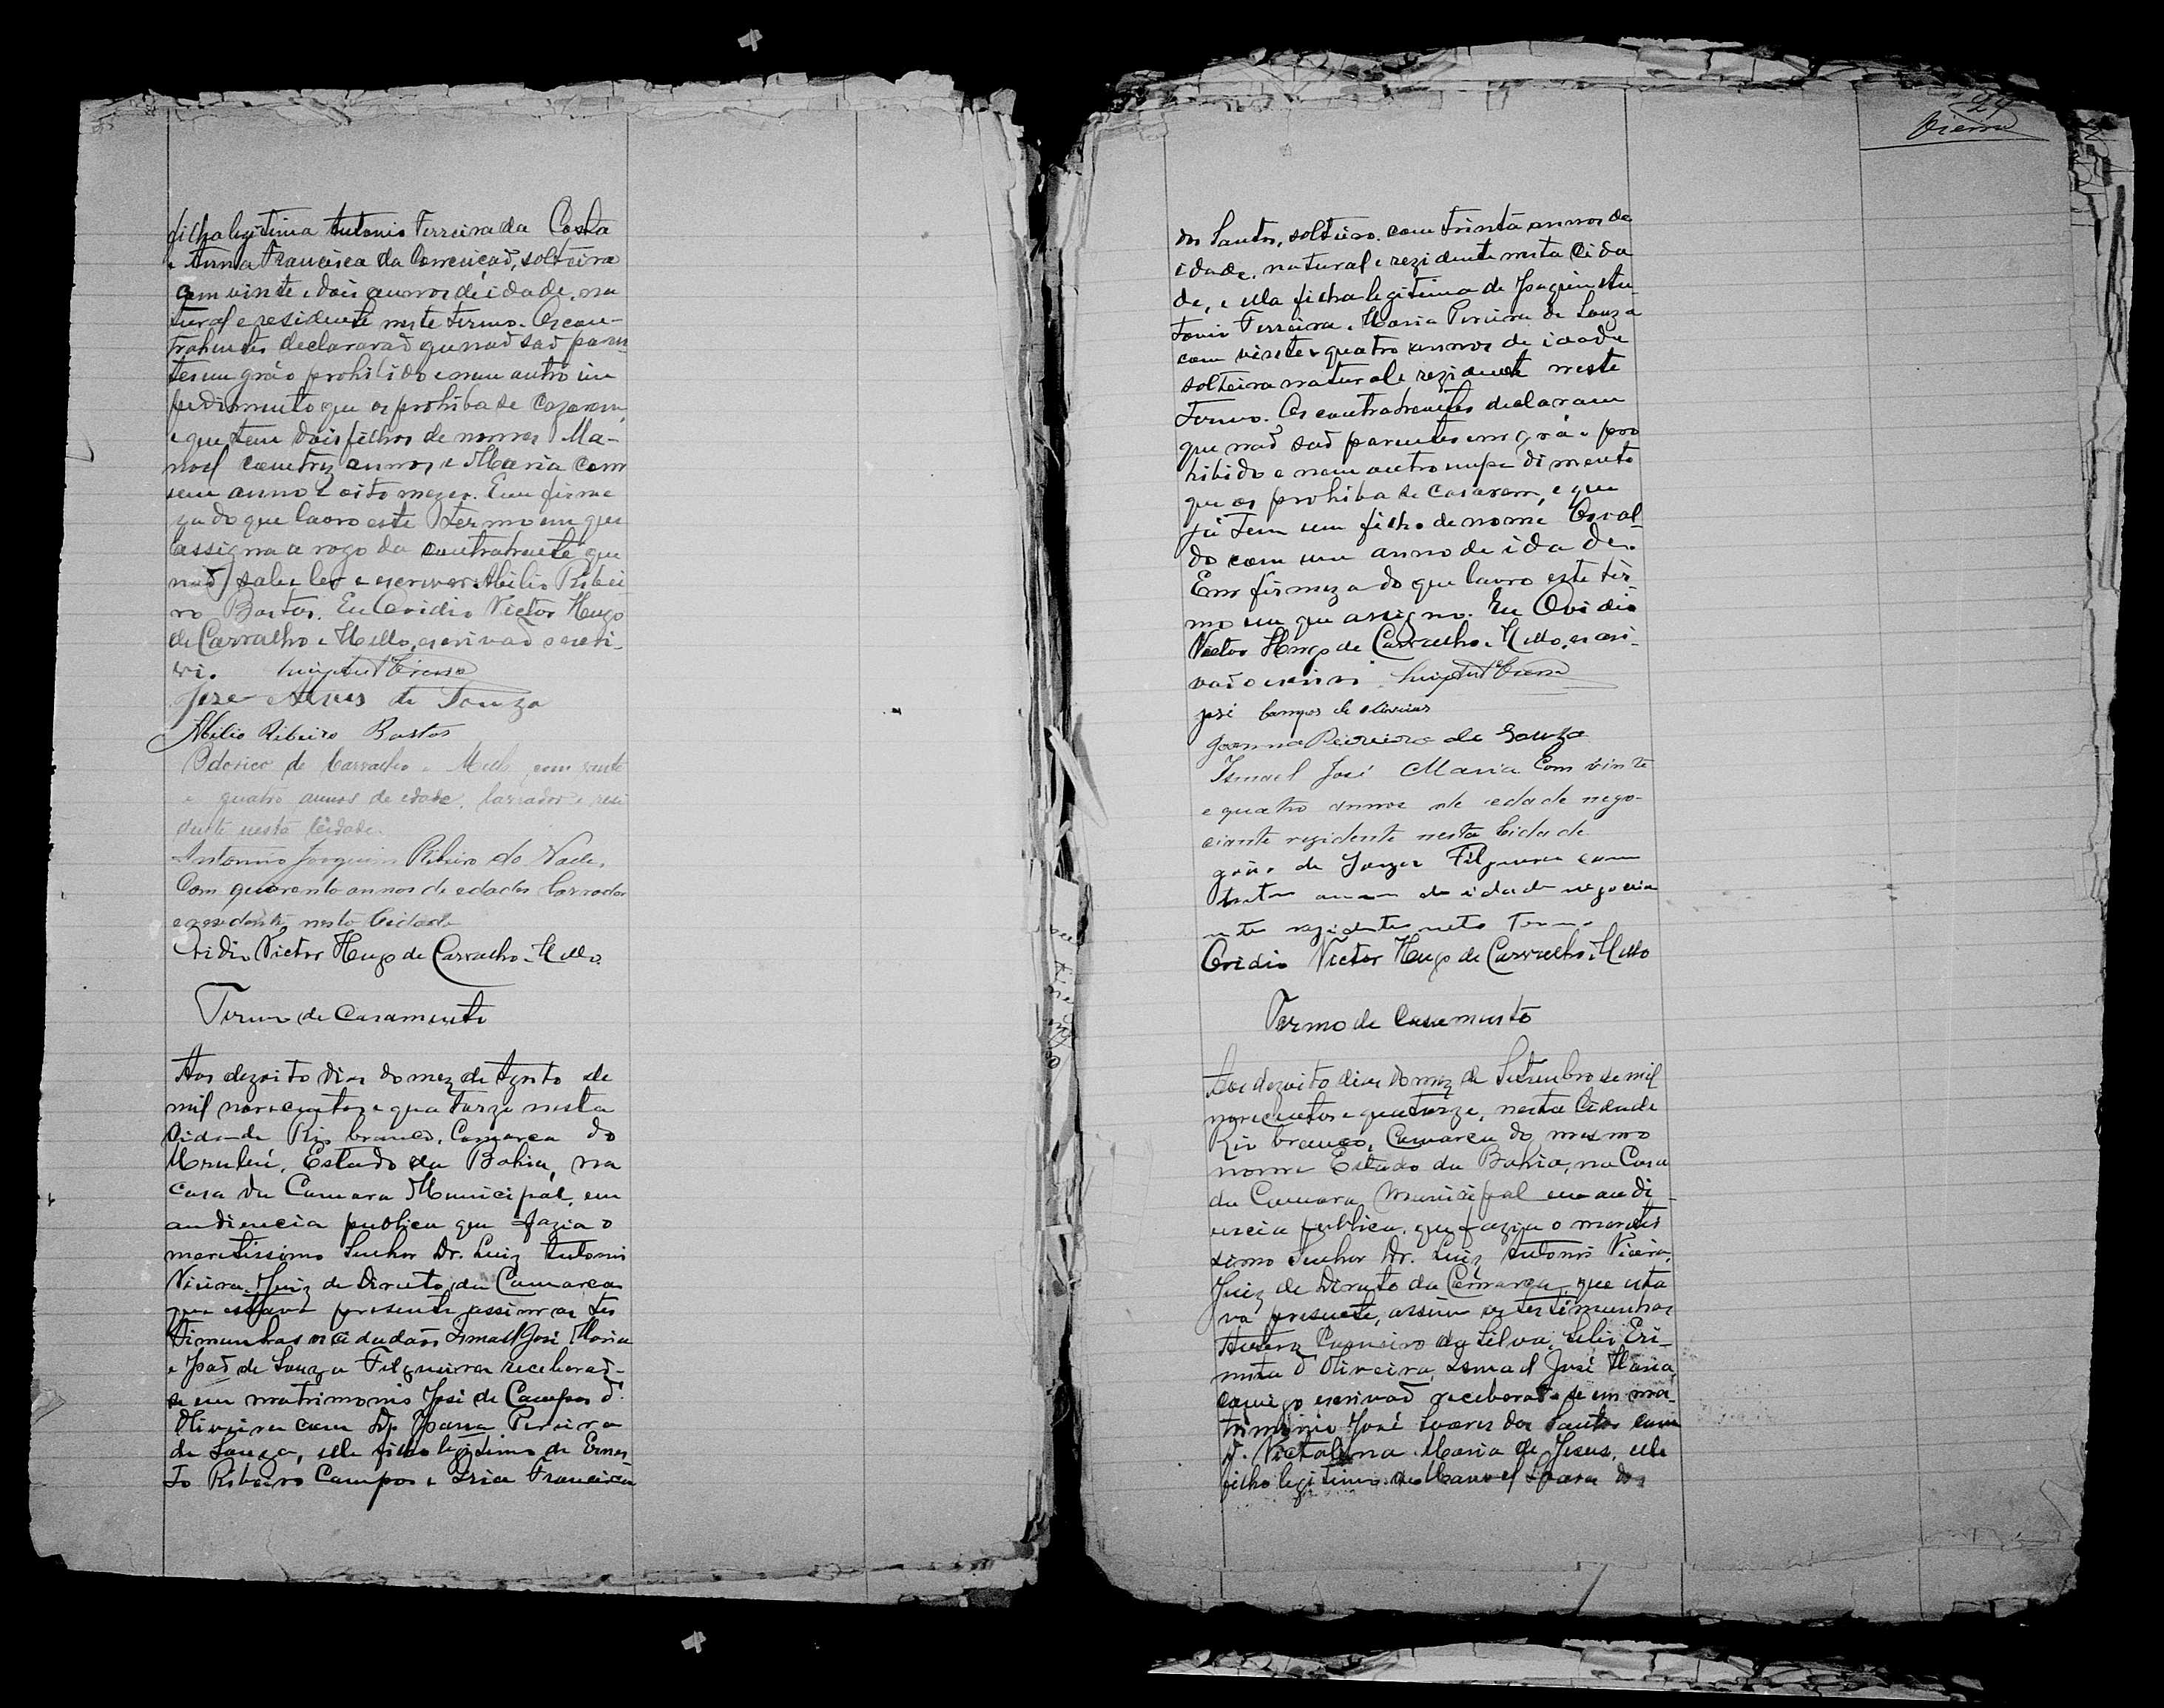 filha legitima Antonio Ferreira da Costa
e Anna Francisca da Conceiçaõ, solteira
com vinte e dois annos de idade, na
tural e residente neste termo. Os con-
trahentes declararaõ que naõ saõ paren
tes em gráo prohibido e nem outro im
pedimento que os prohiba de cazarem,
e que tem dois filhos de nomes Ma-
noel com trez annos e Maria com
um anno e oito mezes. Em firme
za do que lavro este termo em que
assigna a rogo da contrahente que
naõ sabe ler e escrever Abilio Ribei
ro Bastos. Eu Ovidio Victor Hugo
de Carvalho e Mello, escrivaõ o escri-
vi. Luiz Ant Vieira
José Alves de Souza
Abilio Ribeiro Bastos
Oderico de Carvalho e Mello com vinte
e quatro annos de edade, lavrador e resi
dente nesta Cidade.
Antonio Joaquim Ribeiro do Valle,
Com quarenta annos de edade lavrador
e residente nesta Cidade
Ovidio Victor Hugo de Carvalho e Mello
Termo de Casamento
Aos dezoito dias do mez de Agosto de
mil novecentos e quatorze nesta
Cidade Rio branco, Comarca do
Urubú, Estado da Bahia, na
casa da Camara Municipal, em
audiencia publica que fazia o
meretissimo Senhor Dr. Luiz Antonio
Vieira, Juiz de Direito da Comarca
que estava presente, assim as tes
timunhas os cidadaõs Ismael José Maria
e Joaõ de Souza Filgueira receberaõ-
se em matrimonio José de Campos d'
Oliveira com D. Joanna Pereira
de Souza, elle filho legitimo de Ernes
to Ribeiro Campos e Iria Francisca
29
Vieira
dos Santos, solteiro. com trinta annos de
idade, natural e rezidente nesta Cida
de, e ella filha legitima de Joaquim An-
tonio Ferreira e Maria Pereira de Souza
com vinte e quatro annos de idade
solteira natural e rezidente neste
termo. Os contrahentes declaram
que naõ saõ parentes em gráo pro
hibido e nem outro impedimento
que os prohiba de casarem, e que
já tem um filho de nome Osval-
do com um anno de idade.
Em firmeza do que lavro este ter-
mo em que assigno. Eu Ovidio
Victor Hugo de Carvalho e Mello, escri-
vaõ o escrivi. Luiz Ant Vieira
José Campos de Oliveira
Joanna Pereira de Souza
Ismael José Maria Com vinte
e quatro annos de edade nego-
ciante rezidente nesta Cidade
João de Souza Filgueira com
trinta annos de idade negocia
nte rezidente neste Termo
Ovidio Victor Hugo de Carvalho e Mello
Termo de Casamento
Aos dezoito dias do mez de Setembro de mil
novecentos e quatorze, nesta Cidade
Rio branco, Comarca do mesmo
nome Estado da Bahia, na Casa
da Camara Municipal em audi
encia publica que fazia o meretis
simo Senhor Dr. Luiz Antonio Vieira,
Juiz de Direito da Comarca, que esta
va presente, assim as testimunhas
Carneiro da Silva, Eri-
mita d'Oliveira, Ismael José Maria,
comigo escrivaõ receberaõ-se em ma-
trimonio José Soares dos Santos com
D. Victalina Maria de Jesus, elle
filho legitimo de Manoel Soares dos